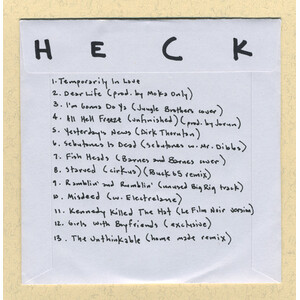 HECK
1. Temporarily In Love
2. Dear Life (prod. by Moka Only)
3. I'm Gonna Do Ya (Jungle Brothers cover)
4. All Hell Freeze (unfinished) (prod by Jorun)
5. Yesterdays News (Dirk Thornton)
6. Sebutones Is Dead (Sebutones w. Mr. Dibbs)
7. Fish Heads (Barnes and Barnes cover)
8. Starved (Cirkus) (Buck 65 remix)
9. Ramblin' and Rumblin' (unused Big Rig track)
10. Misdeed (w. Electrelane)
11. Kennedy Killed The Hat (Le Film Noir version)
12. Girls with Boyfriends (exclusive)
13. The Unthinkable (home made remix)